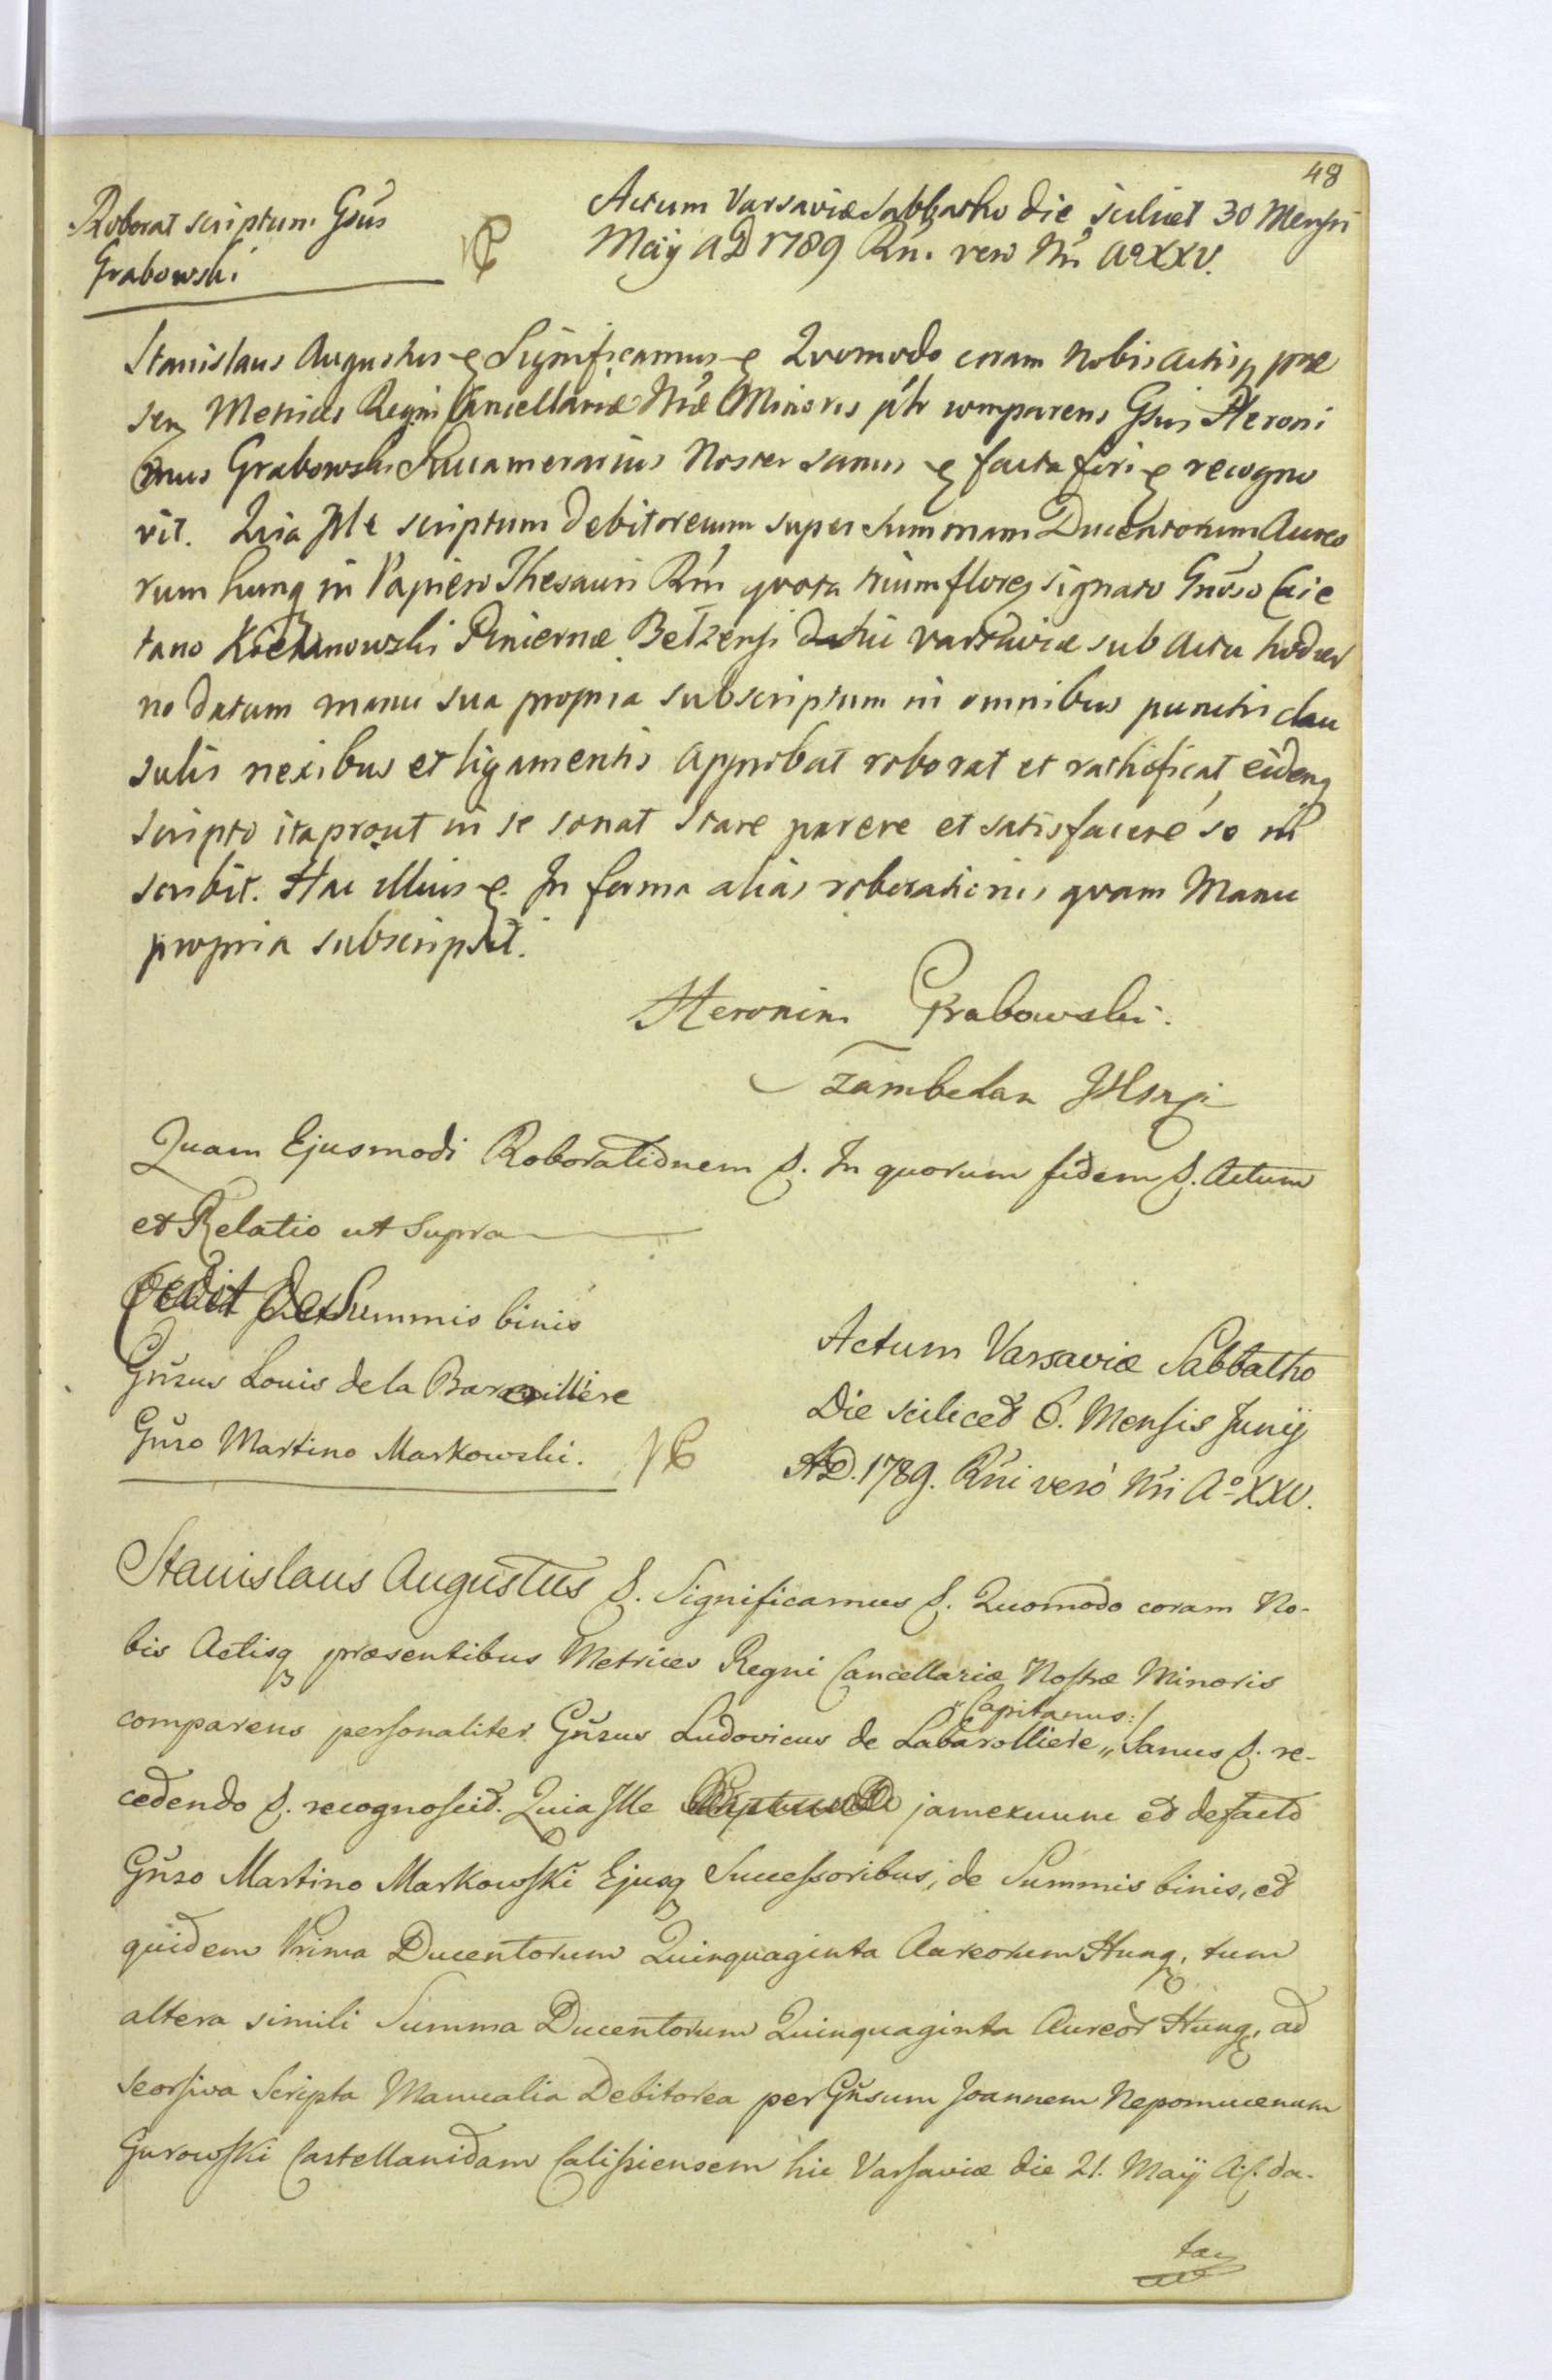 48
Roborat scriptum Gsus
Grabowski
Actum Varsaviæ Sabbatho die scilicet 30 Mensis
Maij AD 1789 Rni. vero Nri Aº XXV.
Stanislaus Augustus Significamus Quomodo coram Nobis Actisq præ
sen Metrices Regni Cancellariæ Nræ Minoris pśtr comparens Gsus Heroni
mus Grabowski Succamerarius Noster sanus facta fori recogno
vit. Quia Ille scriptum debitoreum super summam Ducentorum Aureo
rum hung in Papiero Thesauri Rni quota trium floreg signato Gnoso Caie
tano Kochanowski Pincernæ Betzensi hic varsaviæ sub Actu hodier
no datum manu sua propria subscriptum in omnibus punctis clau
sulis nexibus et ligamentis approbat roborat et rathificat eidemq
scripto itaprout in se sonat stare parere et satisfacere se in
scribit. Hac illius In forma alias roborationis quam Manu
propria subscripsit.
Heronim Grabowski.
Szambelan JKMci
Quam Ejusmodi Roborationem S. In quorum fidem S. Actum
et Relatio ut Supra
Cedit de Summis binis
Gnsus Louis de la Barollière
Gnso Martino Markowski.
Actum Varsaviæ Sabbatho
Die scilicet 6. Mensis Junij
AD. 1789. Rni verò Nri Aº XXV.
Stanislaus Augustus S. Significamus S. Quomodo coram No-
bis Actisq præsentibus Metrices Regni Cancellariæ Nostræ Minoris
„Capitanus:/
comparens personaliter Gnsus Ludovicus de Labarolliere „ Sanus S. re-
cedendo S. recognoscit. Quia Ille jamexnunc et defacto
Gnso Martino Markowski Ejusq Successoribus, de Summis binis, et
quidem Prima Ducentorum Quinquaginta Aureorum Hung, tum
altera simili Summa Ducentorum Quinquaginta Aureor Hung, ad
seorsiva Scripta Manualia Debitorea per Gnsum Joannem Nepomucenum
Gurowski Castellanidam Calisiensem hic Varsaviæ die 21. Maij A: da-
ta